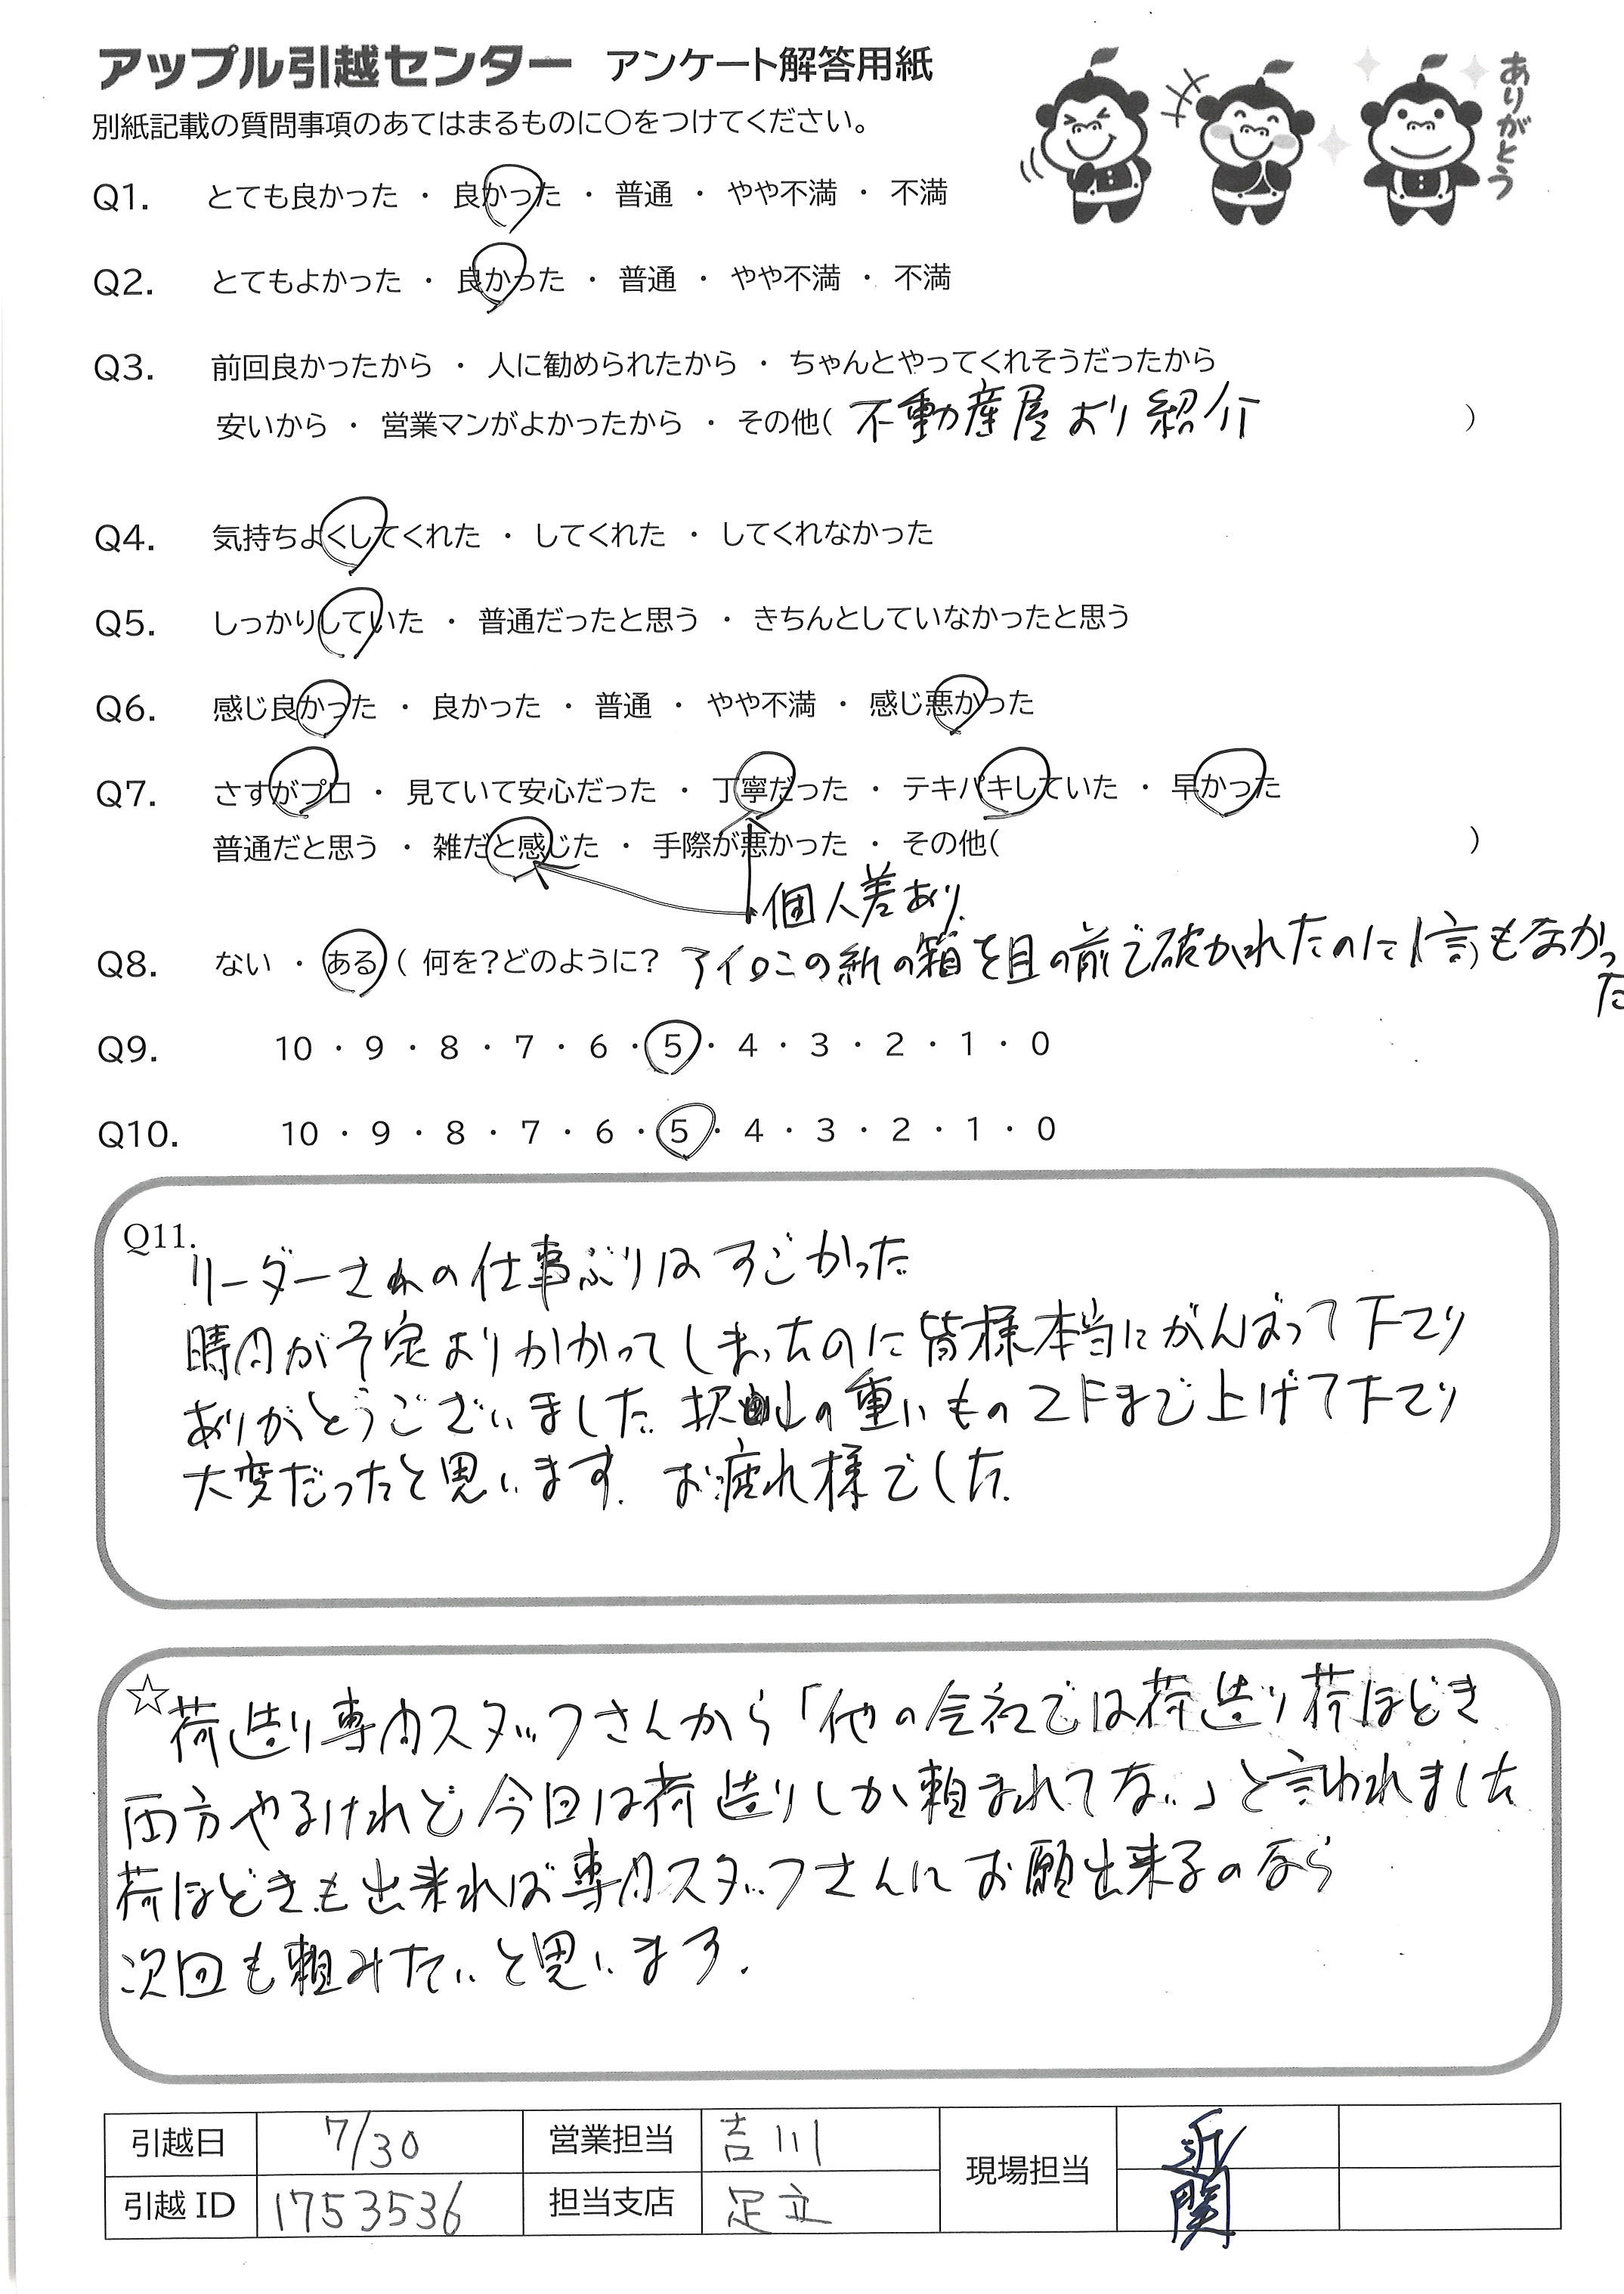 アップル引越センター アンケート解答用紙
ありがとう
別紙記載の質問事項のあてはまるものに○をつけてください。
Q1. とても良かった ・ 良かった ・ 普通 ・ やや不満 ・ 不満
Q2. とてもよかった ・ 良かった ・ 普通 ・ やや不満 ・ 不満
Q3. 前回良かったから ・ 人に勧められたから ・ ちゃんとやってくれそうだったから
安いから ・ 営業マンがよかったから ・ その他( 不動産屋より紹介 )
Q4. 気持ちよくしてくれた ・ してくれた ・ してくれなかった
Q5. しっかりしていた ・ 普通だったと思う ・ きちんとしていなかったと思う
Q6. 感じ良かった ・ 良かった ・ 普通 ・ やや不満 ・ 感じ悪かった
Q7. さすがプロ ・ 見ていて安心だった ・ 丁寧だった ・ テキパキしていた ・ 早かった
普通だと思う ・ 雑だと感じた ・ 手際が悪かった ・ その他( )
個人差あり.
Q8. ない ・ ある ( 何を?どのように? アイロンの紙の箱を目の前で破かれたのに1言もなかった
Q9. 10 ・ 9 ・ 8 ・ 7 ・ 6 ・ 5 ・ 4 ・ 3 ・ 2 ・ 1 ・ 0
Q10. 10 ・ 9 ・ 8 ・ 7 ・ 6 ・ 5 ・ 4 ・ 3 ・ 2 ・ 1 ・ 0
Q11. リーダーさんの仕事ぶりはすごかった
時間が予定よりかかってしまったのに皆様本当にがんばって下さり
ありがとうございました. 沢山の重いもの2Fまで上げて下さり
大変だったと思います. お疲れ様でした.
☆荷造り専門スタッフさんから「他の会社では荷造り荷ほどき
両方やるけれど今回は荷造りしか頼まれてない」と言われました
荷ほどきも出来れば専門スタッフさんにお願出来るのなら
次回も頼みたいと思います.
引越日 7/30 営業担当 吉川 現場担当 近
引越ID 1753536 担当支店 足立 関